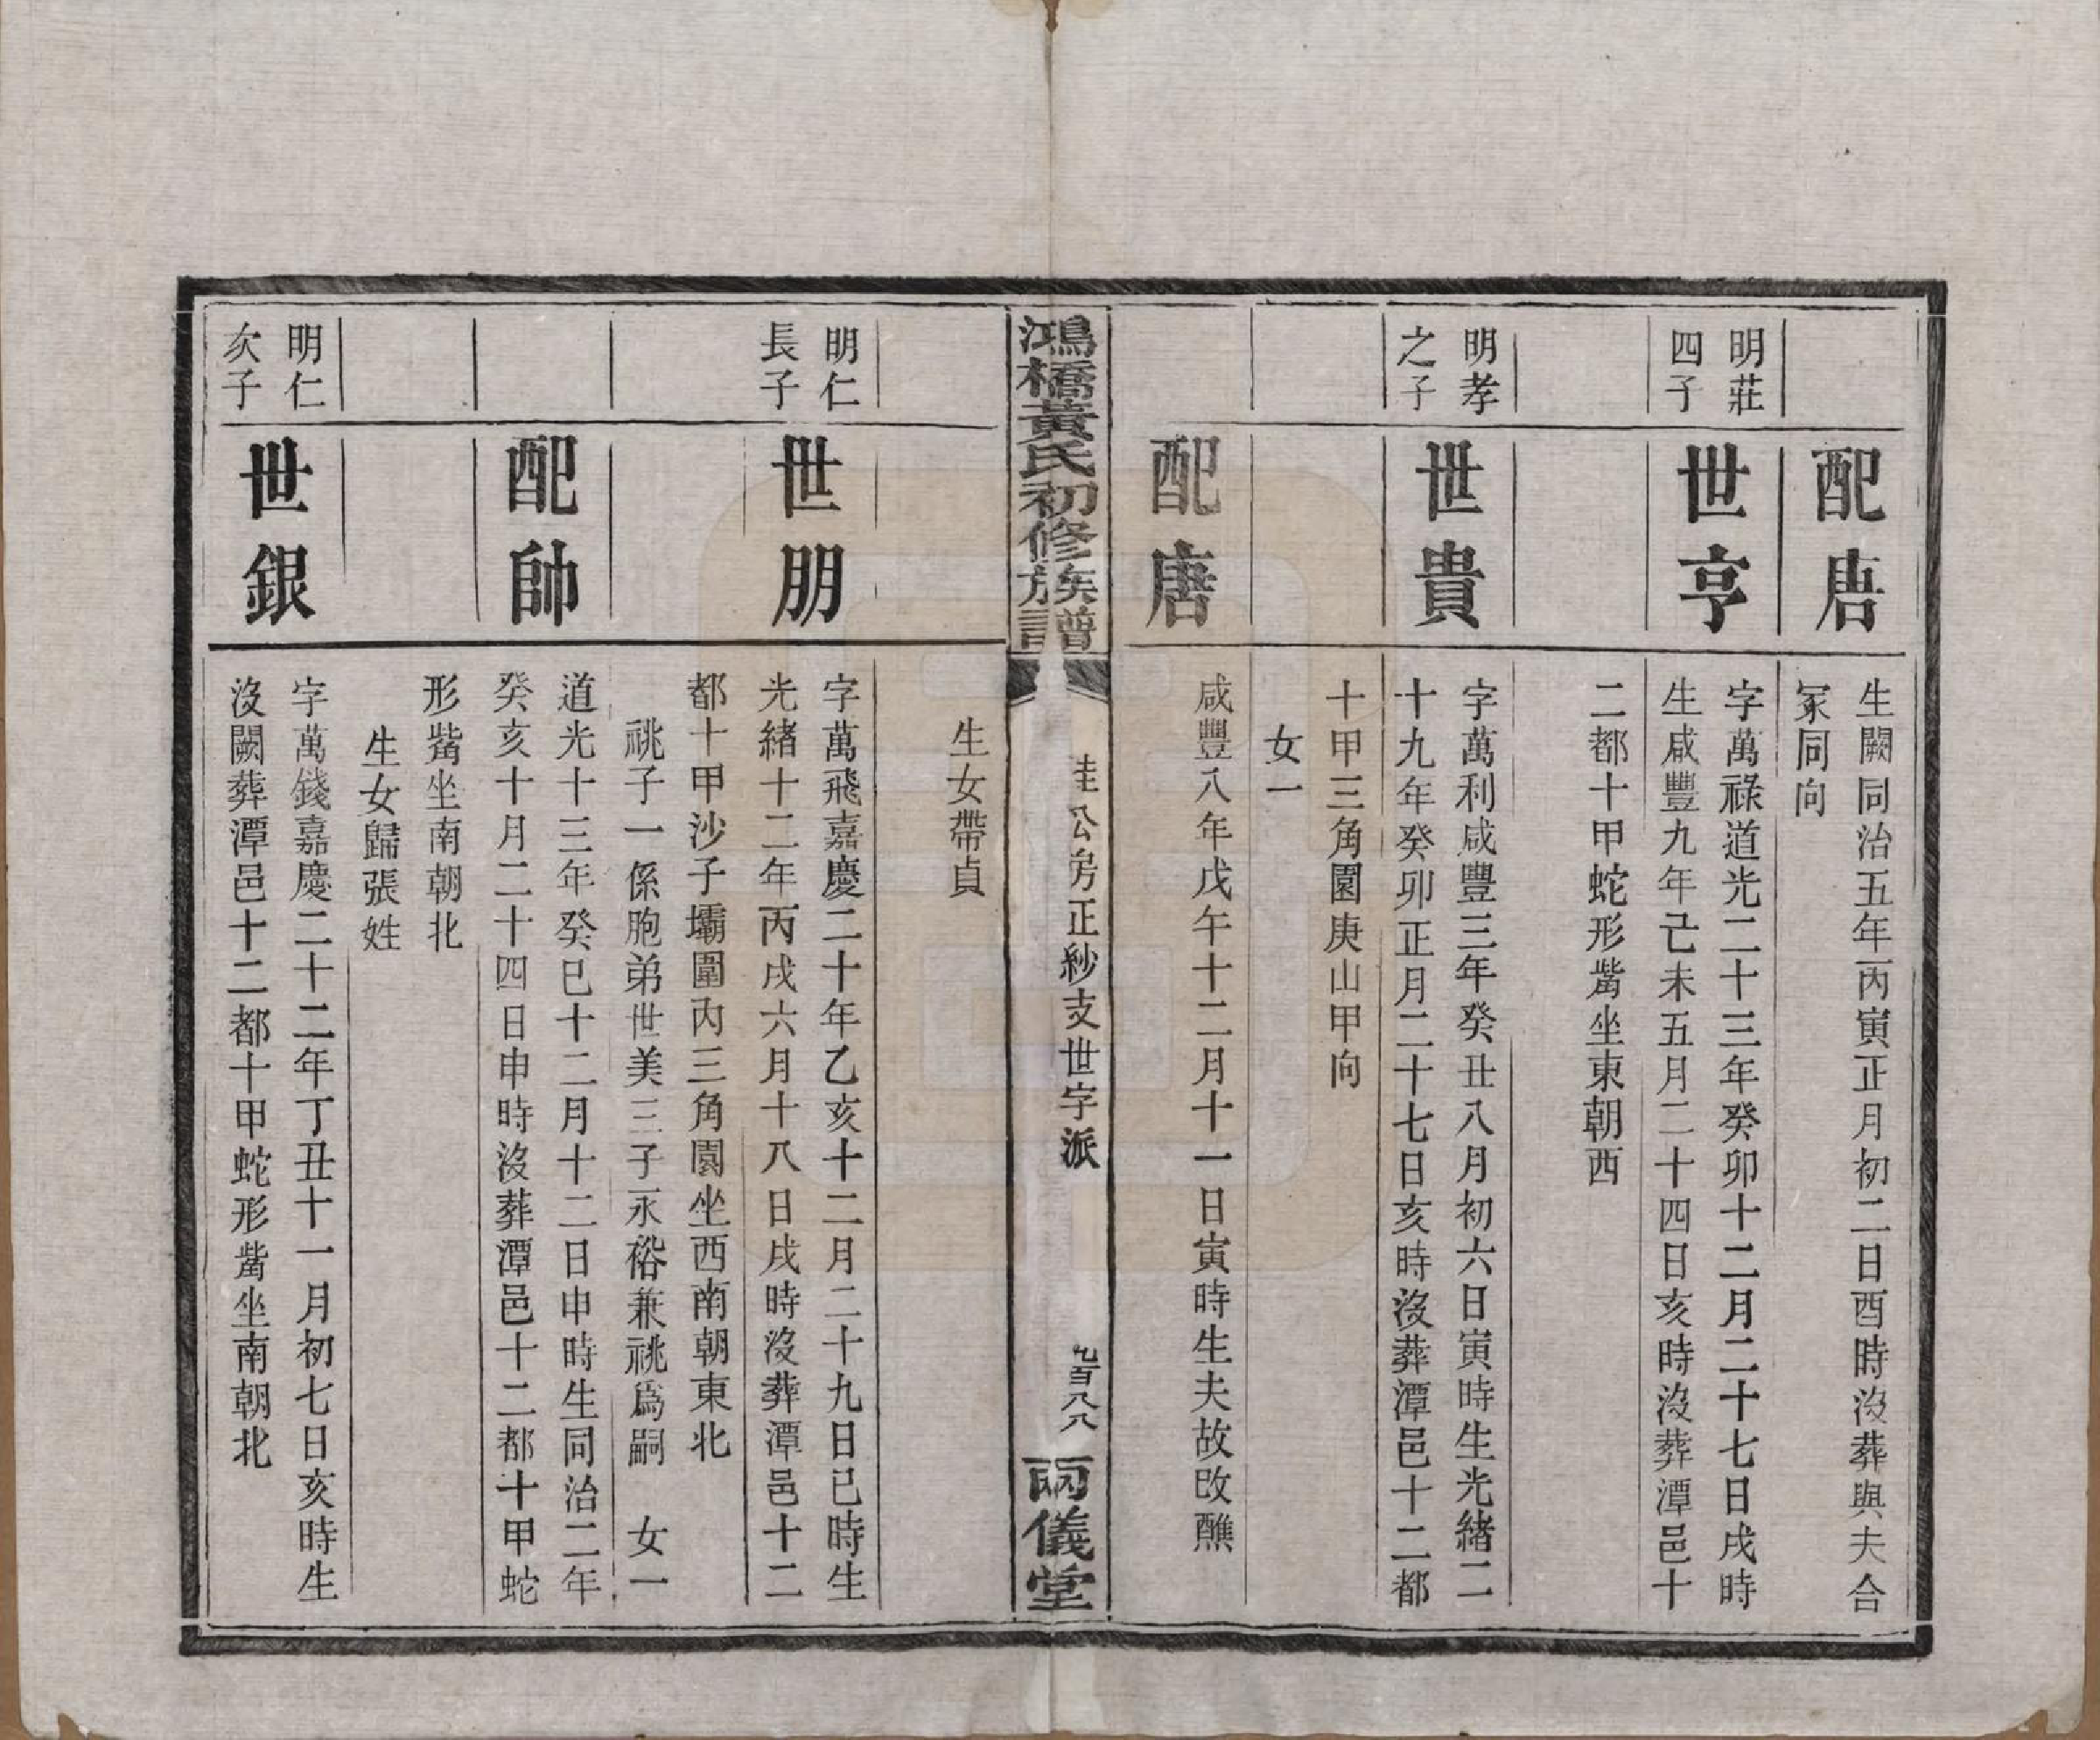 配唐
生闕同治五年丙寅正月初二日酉時沒葬與夫合
冢同向
明莊
四子
世亨
字萬祿道光二十三年癸卯十二月二十七日戌時
生咸豐九年己未五月二十四日亥時沒葬潭邑十
二都十甲蛇形觜坐東朝西
明孝
之子
世貴
字萬利咸豐三年癸丑八月初六日寅時生光緒二
十九年癸卯正月二十七日亥時沒葬潭邑十二都
十甲三角園庚山甲向
女一
配唐
咸豐八年戊午十二月十一日寅時生夫故改醮
鴻橋黃氏初修族譜
公房正紗支世字派
九百八八
兩儀堂
生女帶貞
明仁
長子
世朋
字萬飛嘉慶二十年乙亥十二月二十九日巳時生
光緒十二年丙戌六月十八日戌時沒葬潭邑十二
都十甲沙子壩圍內三角園坐西南朝東北
祧子一係胞弟世美三子永裕兼祧爲嗣　女一
配帥
道光十三年癸巳十二月十二日申時生同治二年
癸亥十月二十四日申時沒葬潭邑十二都十甲蛇
形觜坐南朝北
生女歸張姓
明仁
次子
世銀
字萬錢嘉慶二十二年丁丑十一月初七日亥時生
沒闕葬潭邑十二都十甲蛇形觜坐南朝北